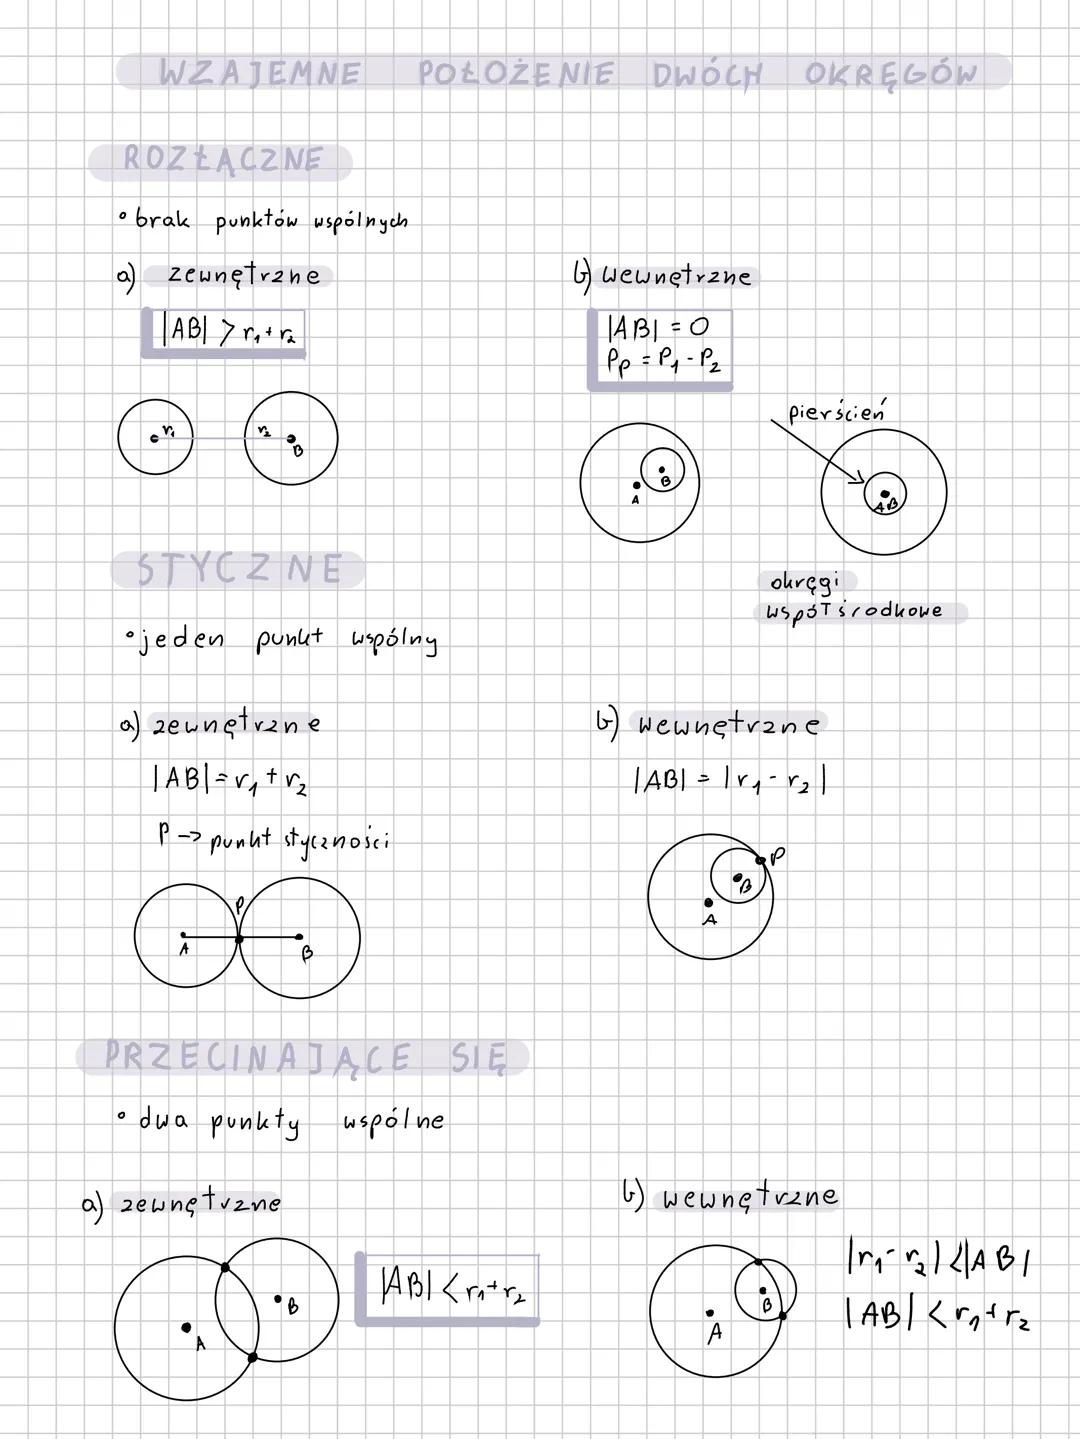 WZAJEMNE POŁOŻENIE DWÓCH OKRĘGÓW
ROZŁĄCZNE
• brak punktów wspólnych
a) zewnętrzne
|AB| > r₁ + r₂
r₁ r₂
B
b) wewnętrzne
|AB| = 0
Pp = P₁ - P₂
A B
pierścień
AB
okręgi
współśrodkowe
STYCZNE
• jeden punkt wspólny
a) zewnętrzne
|AB| = r₁ + r₂
P -> punkt styczności
P
A B
b) wewnętrzne
|AB| = |r₁ - r₂|
P
B
A
PRZECINAJĄCE SIĘ
• dwa punkty wspólne
a) zewnętrzne
|AB| < r₁ + r₂
B
A
b) wewnętrzne
|r₁ - r₂| < |AB|
|AB| < r₁ + r₂
B
A